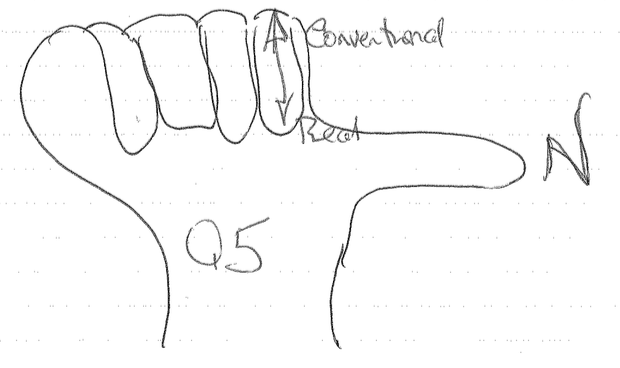 Conventional
Real
N
Q5